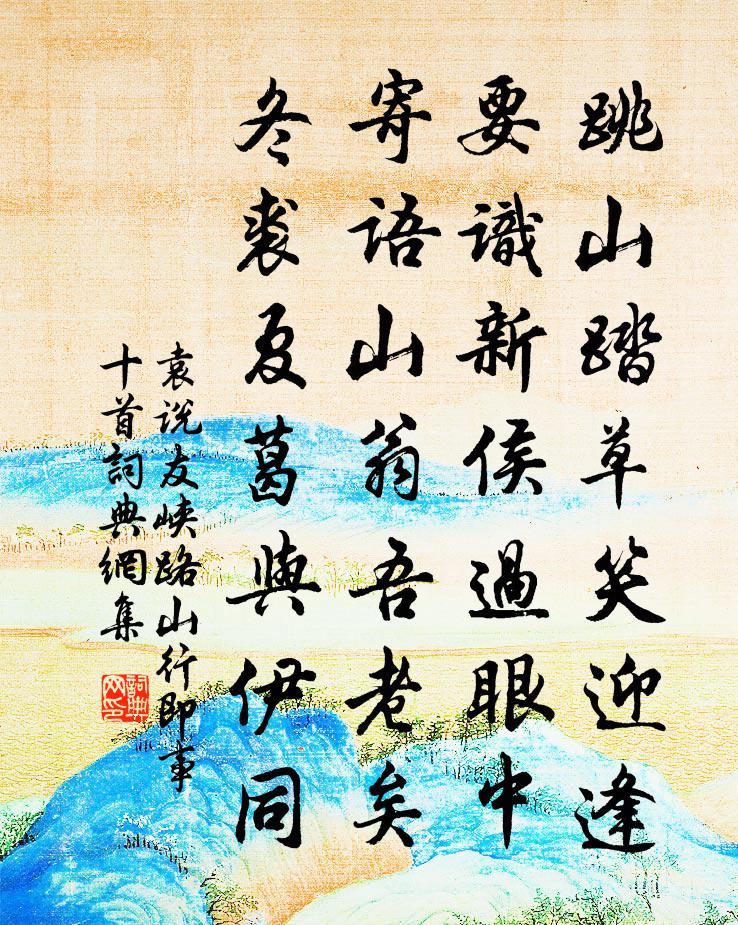 跳山踏草笑迎逢
要識新侯過眼中
寄語山翁吾老矣
冬裘夏葛與伊同
袁說友峽路山行即事
十首詞典網集
詞典
网印